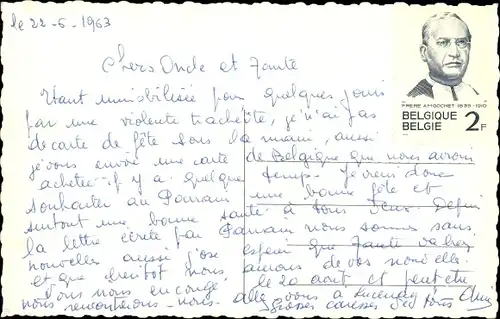 le 22-6-1963
Chers Oncle et Tante
FRERE A.M. GOCHET 1835-1910
BELGIQUE
BELGIE 2F
Etant immobilisée pour quelques jours
par une violente trachéite, je n'ai pas
de carte de fête sous la main, aussi
je vous envoie une carte de Belgique que nous avions
achetée il y a quelque temps. Je viens donc
souhaiter au Parrain une bonne fête et
surtout une bonne santé à tous deux. Depuis
la lettre écrite par Parrain nous sommes sans
nouvelles aussi j'ose espérer que Tante va bien
et que bientôt nous aurons de vos nouvelles.
Nous nous en congé le 20 août et peut être
nous rencontrerons-nous
allez vous à
Grosses caresses des